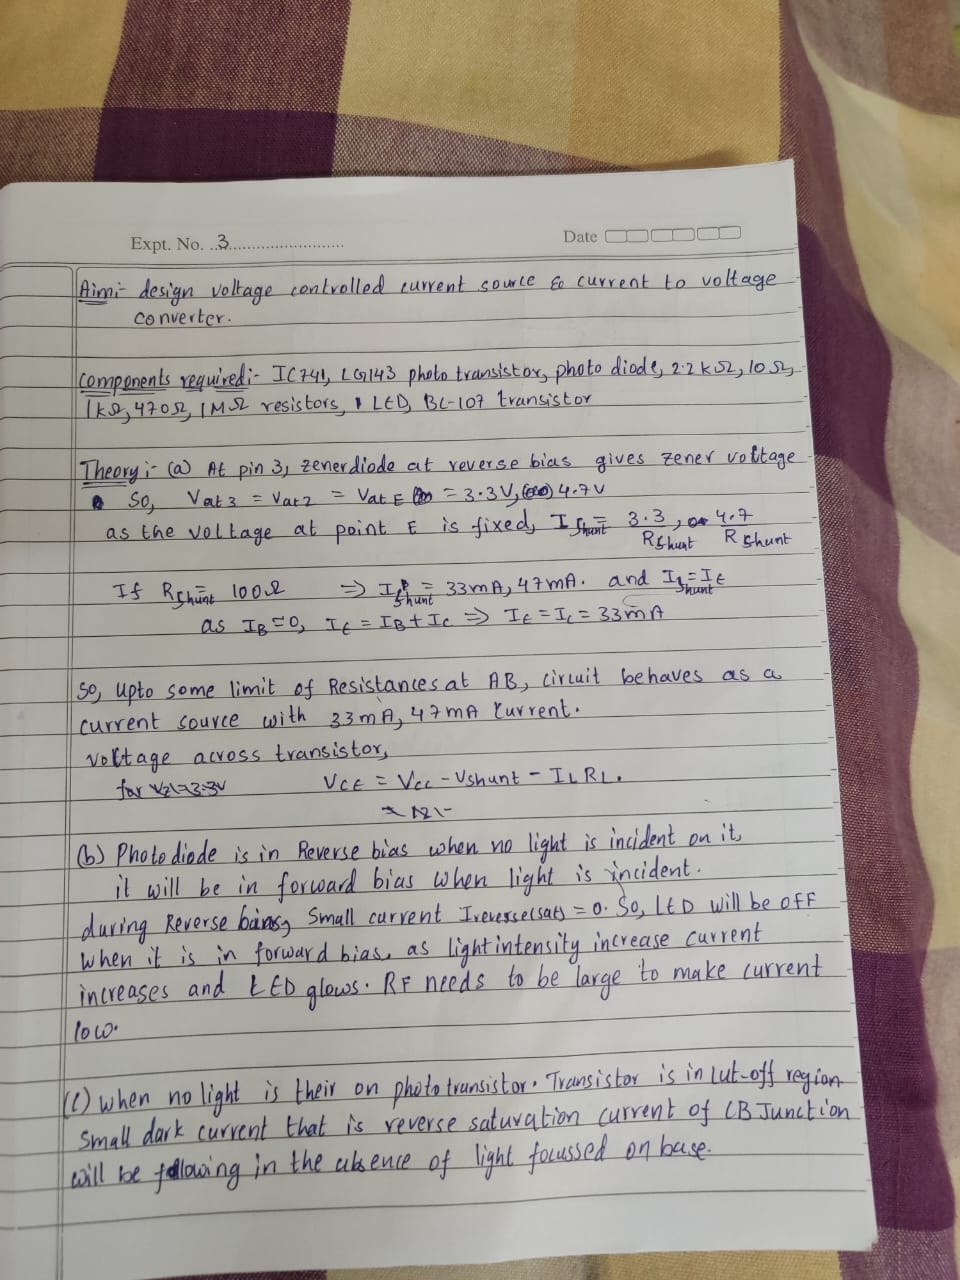 Expt. No. ..3..........................
Date
Aim:- design voltage controlled current source & current to voltage
converter.
Components required:- IC741, LG143 photo transistor, photo diode, 2.2 kΩ, 10 Ω,
1kΩ, 470Ω, 1MΩ resistors, LED, BC-107 transistor
Theory:- (a) At pin 3, zenerdiode at reverse bias gives zener voltage
So, Vat3 = Vat2 = Vat E = 3.3V, 4.7V
as the voltage at point E is fixed, IShunt = 3.3/RShunt, 4.7/RShunt
If RShunt = 100Ω ⇒ IShunt = 33mA, 47mA. and IShunt = IE
as IB≈0, IE = IB + IC ⇒ IE = IC = 33mA
So, upto some limit of Resistances at AB, circuit behaves as a
current source with 33mA, 47mA current.
voltage across transistor,
for Vz=3.3V VCE = Vcc - Vshunt - ILRL.
(b) Photo diode is in Reverse bias when no light is incident on it,
it will be in forward bias when light is incident.
during Reverse baias, Small current Ireverse(sat) = 0. So, LED will be off
when it is in forward bias, as light intensity increase current
increases and LED glows. RF needs to be large to make current
low.
(c) when no light is their on photo transistor. Transistor is in cut-off region
Small dark current that is reverse saturation current of CB Junction
will be following in the absence of light focussed on base.